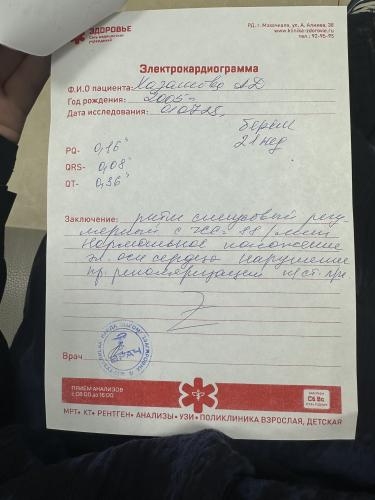 ЗДОРОВЬЕ
Сеть медицинских
учреждений
РД, г. Махачкала, ул. А. Алиева, 38
www.klinika-zdorovie.ru
тел.: 92-95-95
Электрокардиограмма
Ф.И.О пациента:
Год рождения: 2005 г
Дата исследования: 010725г
берем
21 нед
PQ- 0,16"
QRS- 0,08"
QT- 0,36"
Заключение: ритм синусовый регу
лярный с ЧСС= 88/мин
нормальное положение
эл. оси сердца нарушение
пр. реполяризации
Врач
ПРИЕМ АНАЛИЗОВ
с 08:00 до 16:00
МРТ• КТ• РЕНТГЕН• АНАЛИЗЫ• УЗИ• ПОЛИКЛИНИКА ВЗРОСЛАЯ, ДЕТСКАЯ